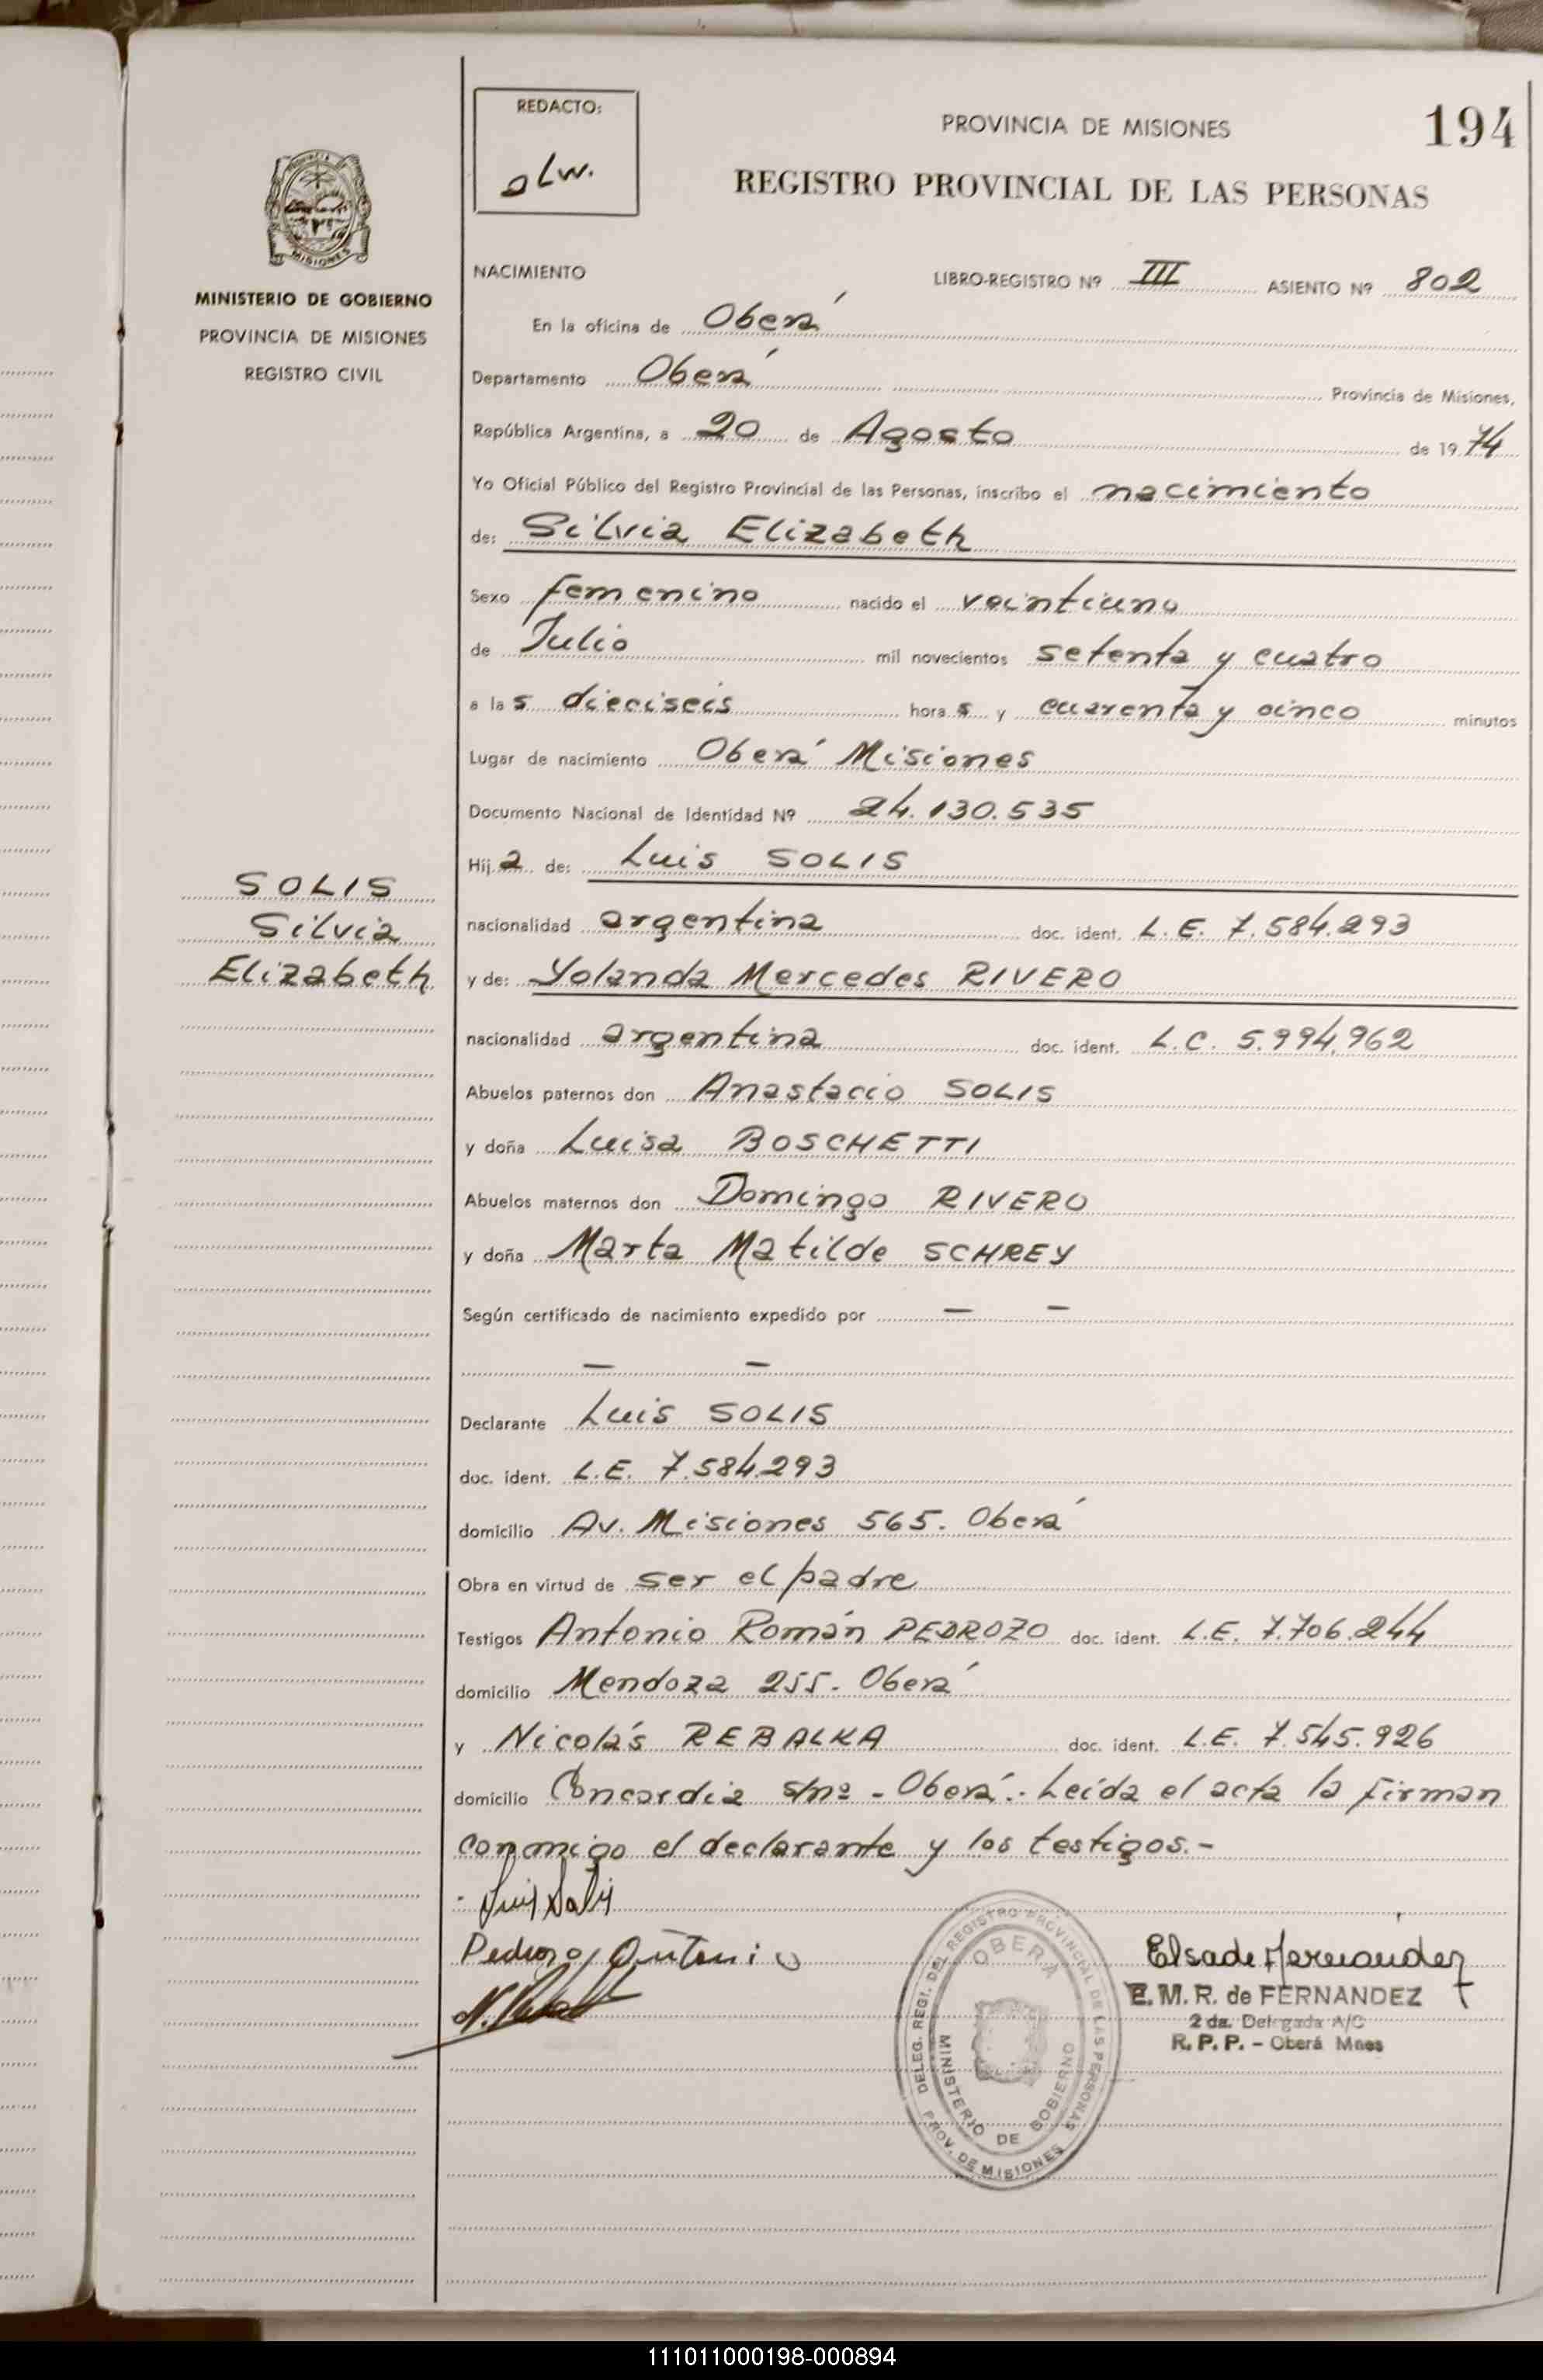 REDACTO:
olw.
PROVINCIA DE MISIONES
194
REGISTRO PROVINCIAL DE LAS PERSONAS
MISIONES
MINISTERIO DE GOBIERNO
PROVINCIA DE MISIONES
REGISTRO CIVIL
NACIMIENTO LIBRO-REGISTRO Nº III ASIENTO Nº 802
En la oficina de Oberá
Departamento Oberá Provincia de Misiones,
República Argentina, a 20 de Agosto de 1974
Yo Oficial Público del Registro Provincial de las Personas, inscribo el nacimiento
de: Silvia Elizabeth
Sexo femenino nacido el veintiuno
de Julio mil novecientos setenta y cuatro
a las dieciseis horas y cuarenta y cinco minutos
Lugar de nacimiento Oberá Misiones
Documento Nacional de Identidad Nº 24.130.535
Hija de: Luis SOLIS
SOLIS
Silvia
Elizabeth
nacionalidad argentina doc. ident. L.E. 7.584.293
y de: Yolanda Mercedes RIVERO
nacionalidad argentina doc. ident. L.C. 5.994.962
Abuelos paternos don Anastacio SOLIS
y doña Luisa BOSCHETTI
Abuelos maternos don Domingo RIVERO
y doña Marta Matilde SCHREY
Según certificado de nacimiento expedido por — —
— —
Declarante Luis SOLIS
doc. ident. L.E. 7.584.293
domicilio Av. Misiones 565. Oberá
Obra en virtud de ser el padre
Testigos Antonio Román PEDROZO doc. ident. L.E. 7.706.244
domicilio Mendoza 255. Oberá
y Nicolás REBALKA doc. ident. L.E. 7.545.926
domicilio Concordia s/nº - Oberá.- Leída el acta la firman
conmigo el declarante y los testigos.-
Luis Solis
Pedrozo, Antonio
Elsa de Fernandez
E. M. R. de FERNANDEZ
2 da. Delegada A/C
R. P. P. - Oberá Mnes
DELEG. REGI. DEL REGISTRO PROVINCIAL DE LAS PERSONAS
OBERA
MINISTERIO DE GOBIERNO
PROV. DE MISIONES
111011000198-000894